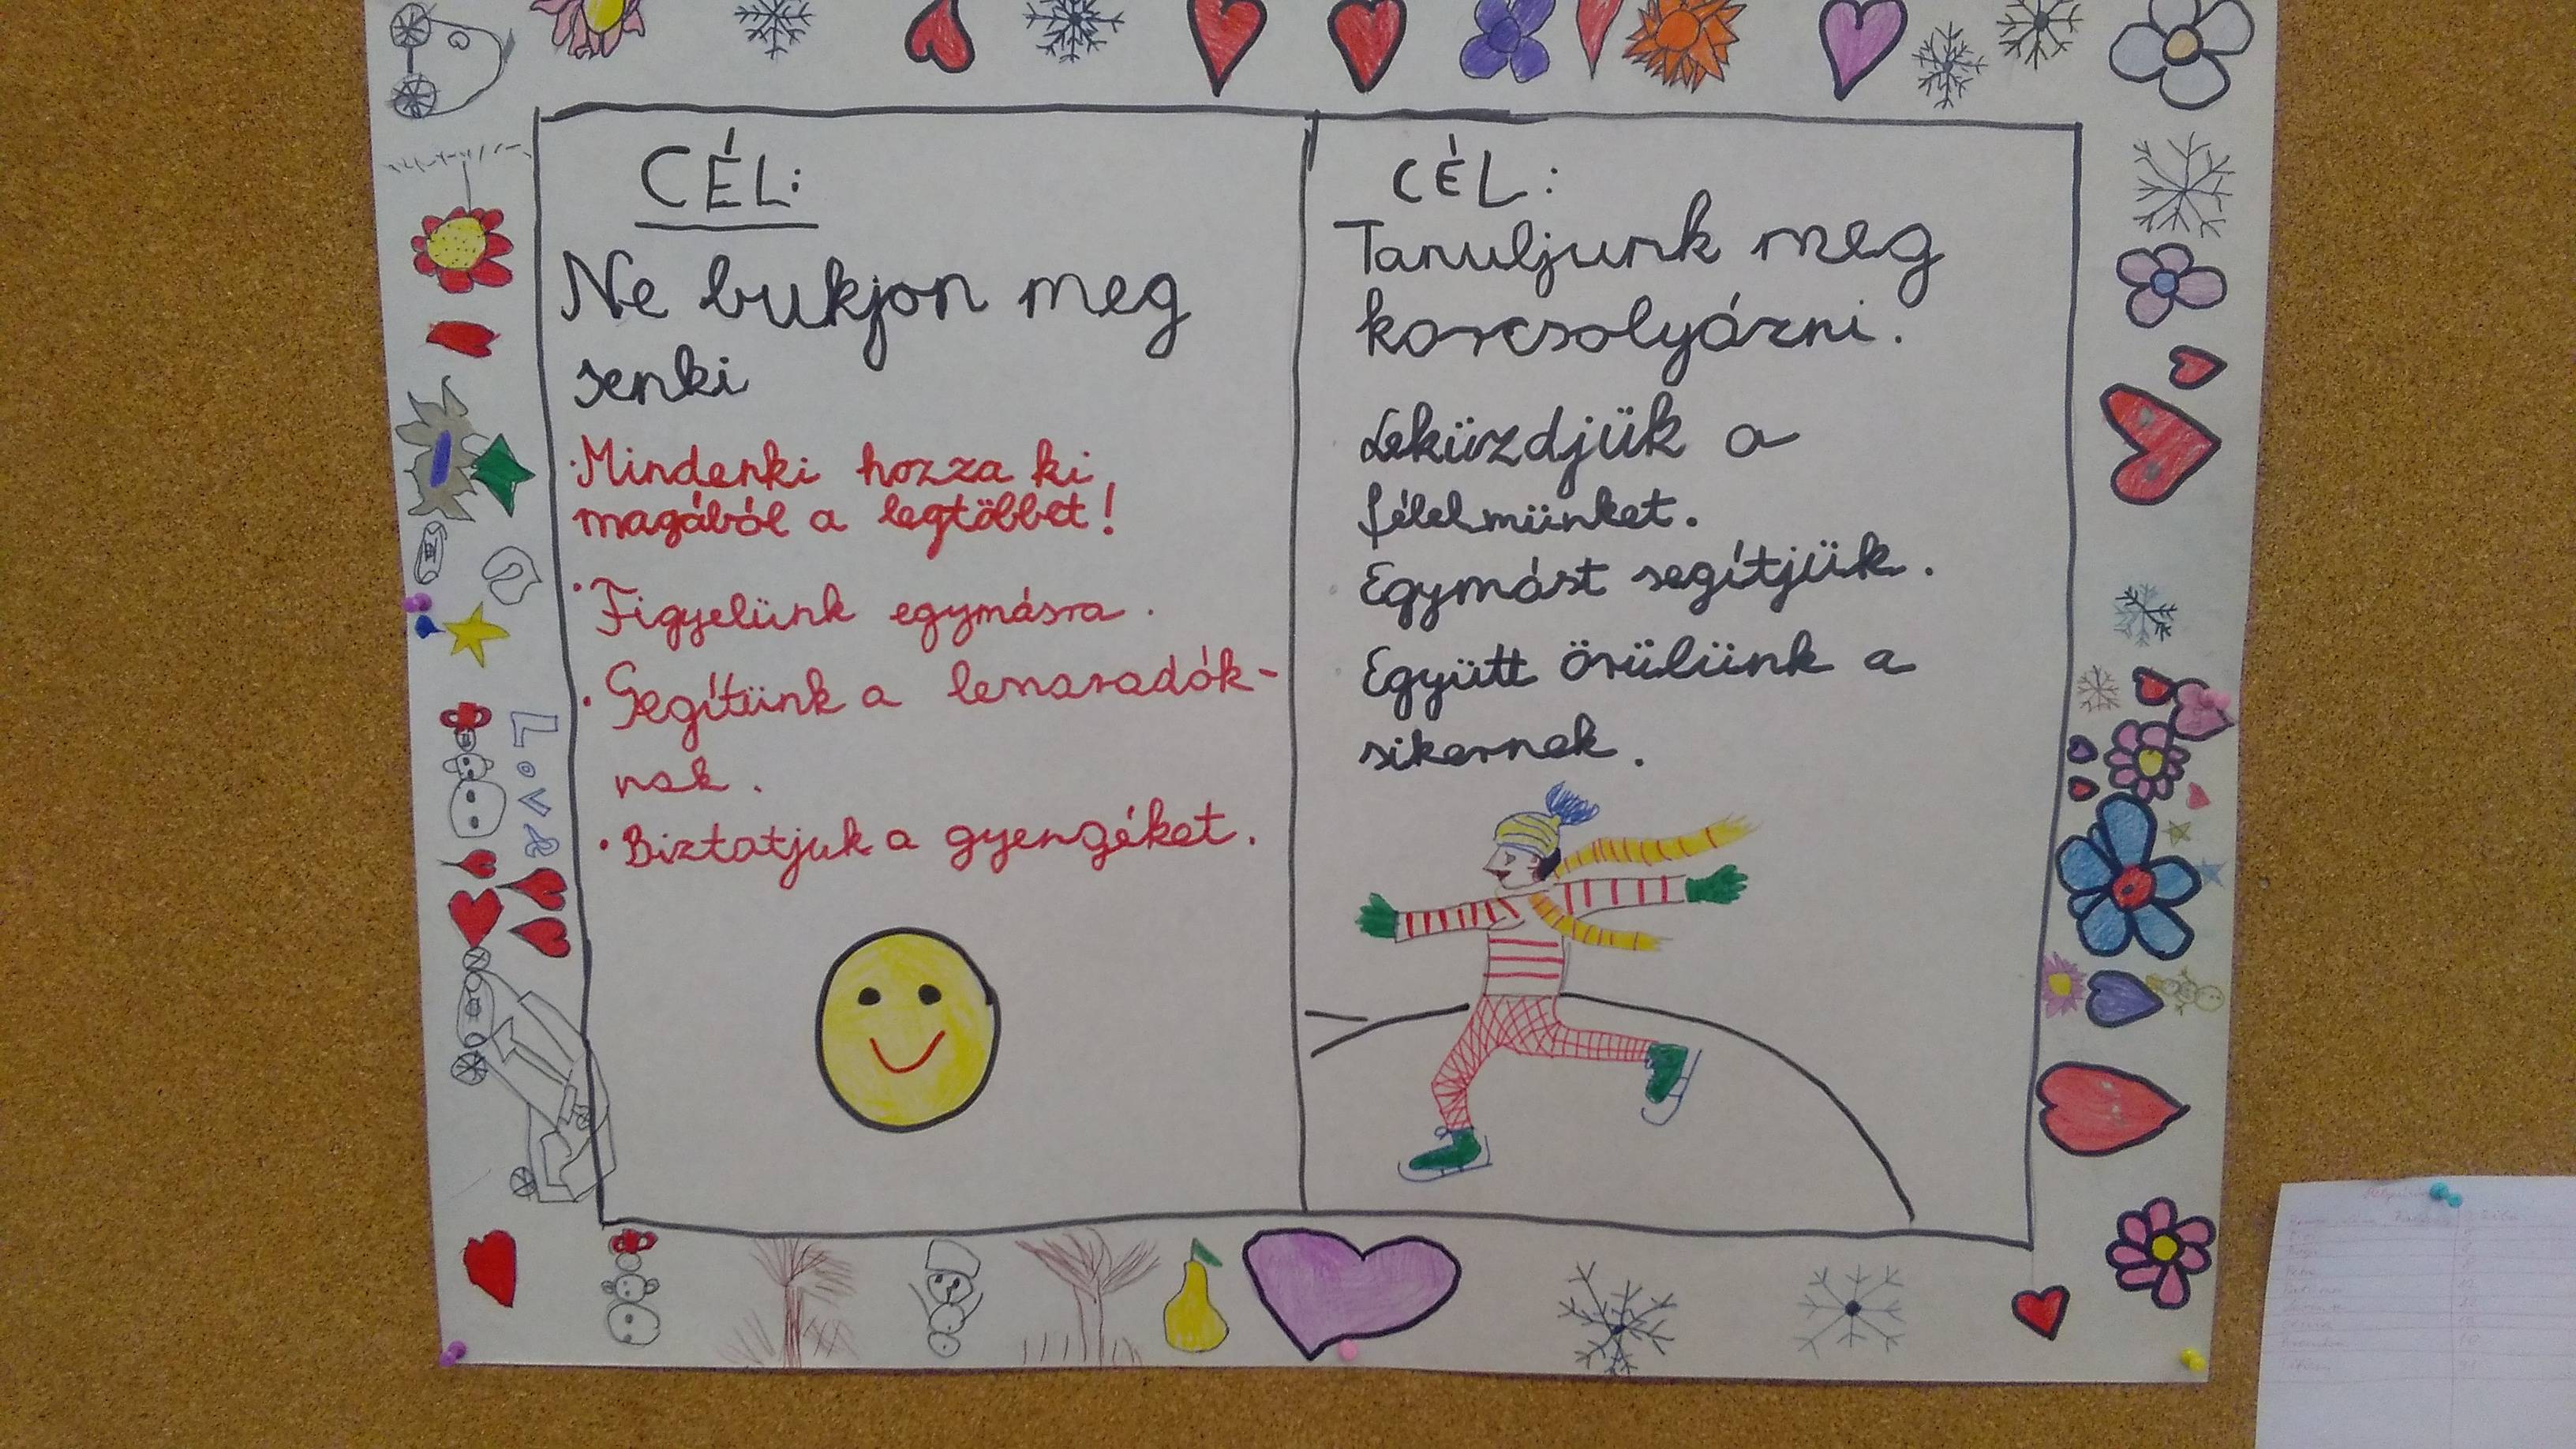 CÉL:
Ne bukjon meg
senki
·Mindenki hozza ki
magából a legtöbbet!
·Figyelünk egymásra.
·Segítünk a lemaradók-
nak.
·Biztatjuk a gyengéket.
CÉL:
Tanuljunk meg
korcsolyázni.
Leküzdjük a
félelmünket.
Egymást segítjük.
Együtt örülünk a
sikernek.
Love